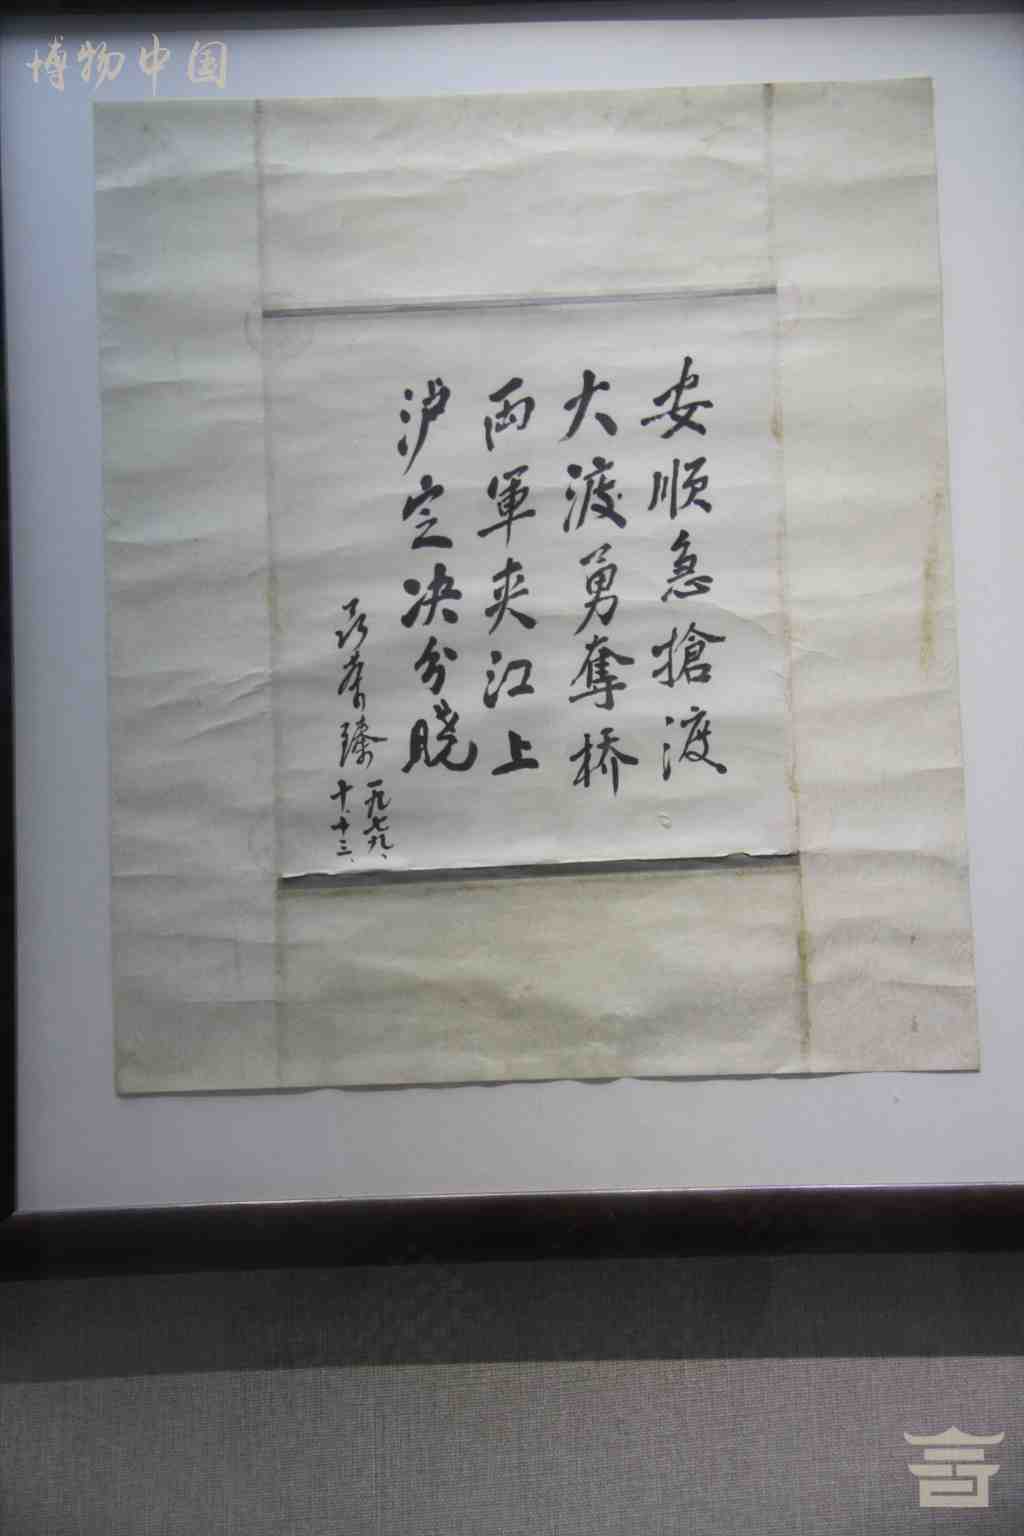 博物中国
安顺急搶渡
大渡勇奪桥
両軍夹江上
泸定决分晓
聂荣臻
一九七九、
十、十三、